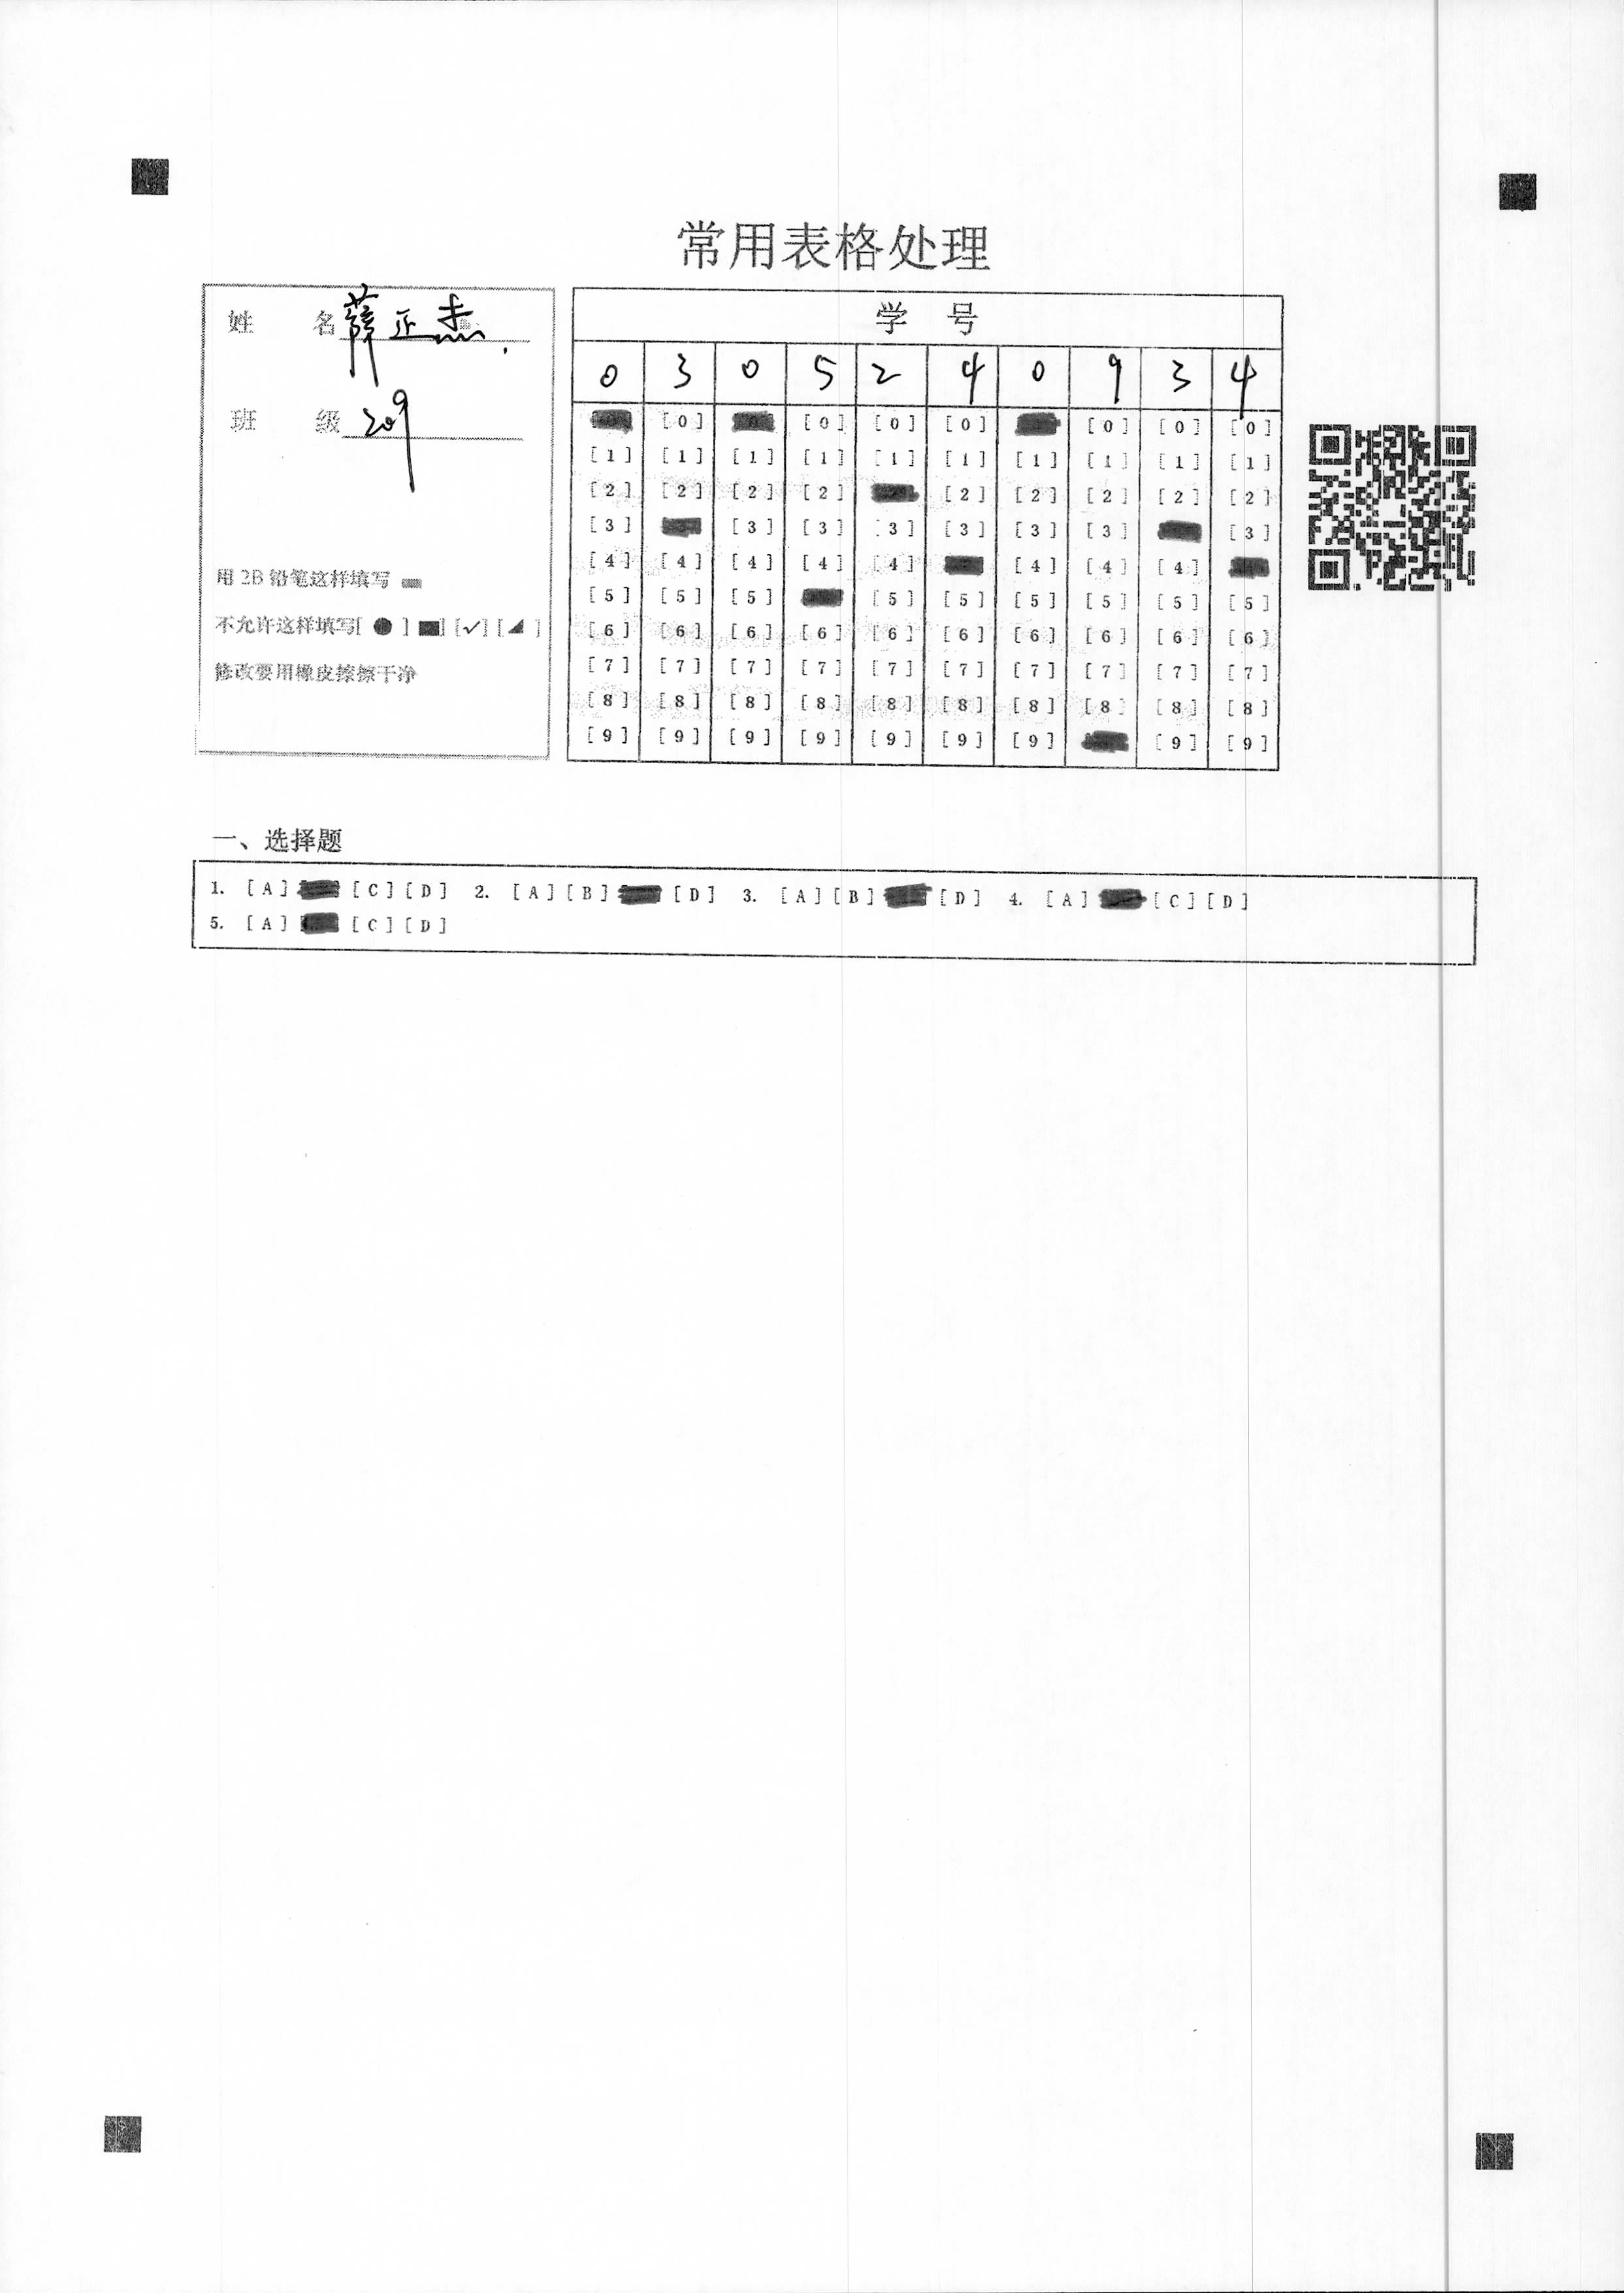 常用表格处理
姓 名 薛正杰
班 级 209
用 2B 铅笔这样填写
不允许这样填写[ ● ] [■] [✓] [◢ ]
修改要用橡皮擦擦干净
学 号
0 3 0 5 2 4 0 9 3 4
[0] [0] [0] [0] [0] [0] [0]
[1] [1] [1] [1] [1] [1] [1] [1] [1] [1]
[2] [2] [2] [2] [2] [2] [2] [2] [2]
[3] [3] [3] [3] [3] [3] [3] [3]
[4] [4] [4] [4] [4] [4] [4] [4]
[5] [5] [5] [5] [5] [5] [5] [5] [5]
[6] [6] [6] [6] [6] [6] [6] [6] [6] [6]
[7] [7] [7] [7] [7] [7] [7] [7] [7] [7]
[8] [8] [8] [8] [8] [8] [8] [8] [8] [8]
[9] [9] [9] [9] [9] [9] [9] [9] [9]
一、选择题
1. [A] [C] [D] 2. [A] [B] [D] 3. [A] [B] [D] 4. [A] [C] [D]
5. [A] [C] [D]